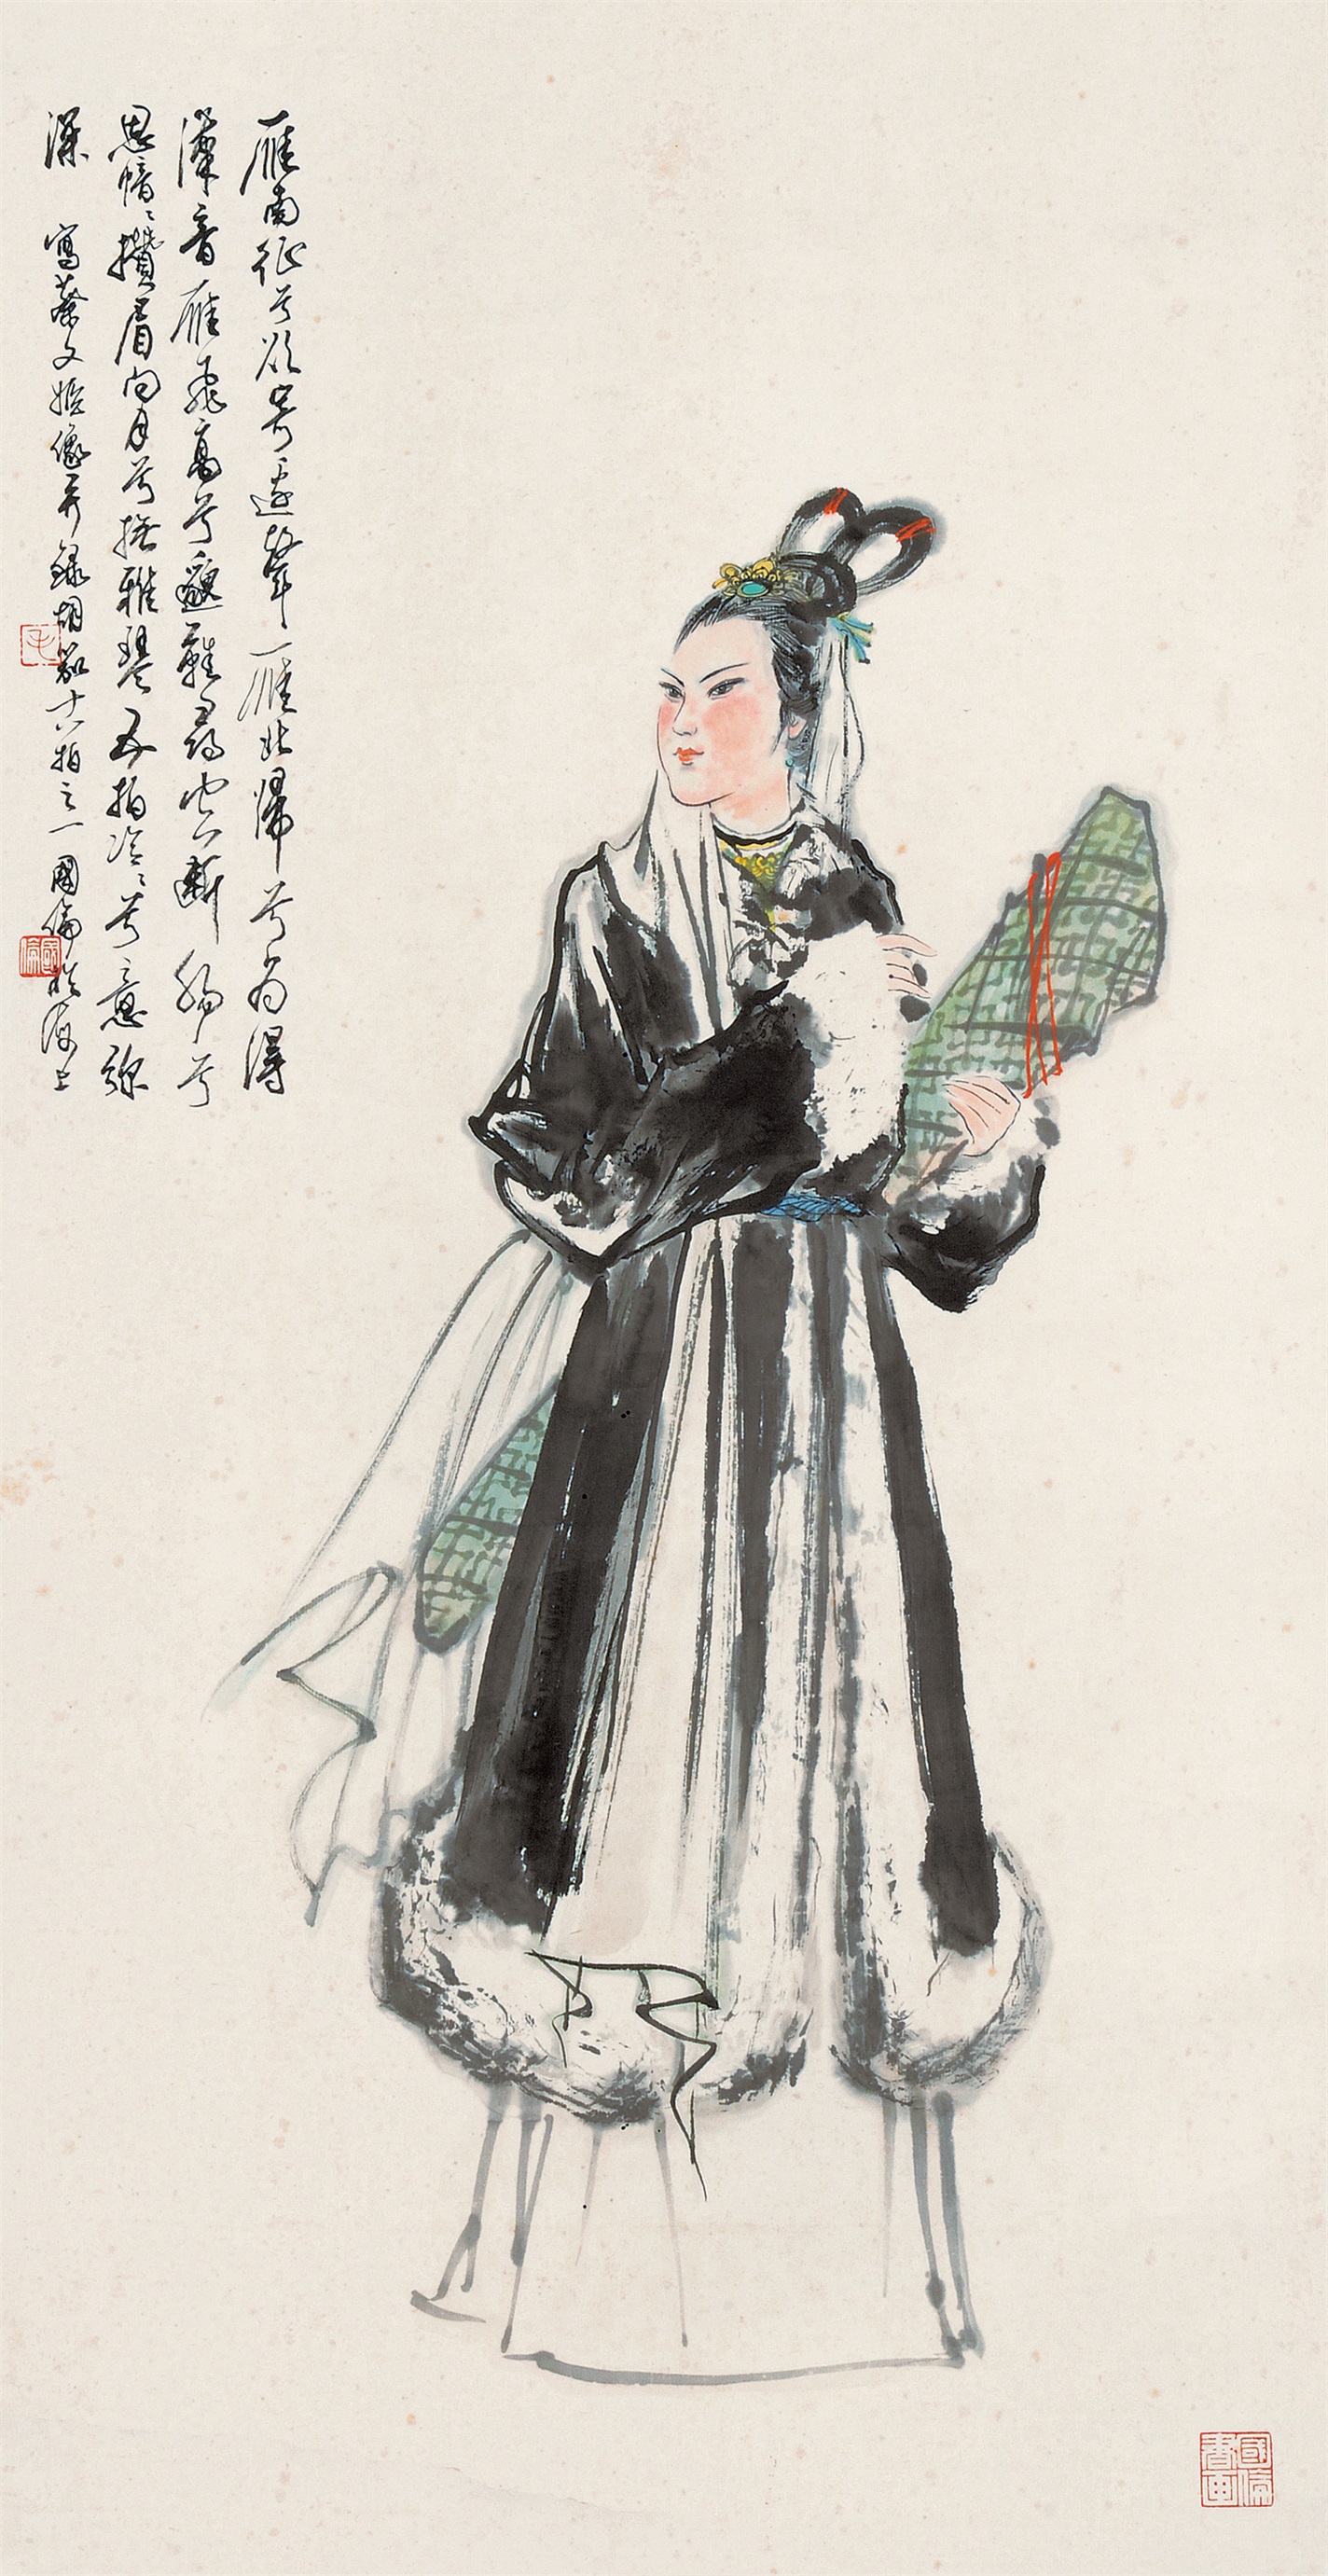 雁南征兮欲寄边聲雁北歸兮为得
漢音雁飛高兮邈難尋空斷腸兮
思愔〻攢眉向月兮撫雅琴五拍泠〻兮意弥
深 寫蔡文姬像并録胡笳十八拍之一國倫於海上
毛
國倫
國倫書画